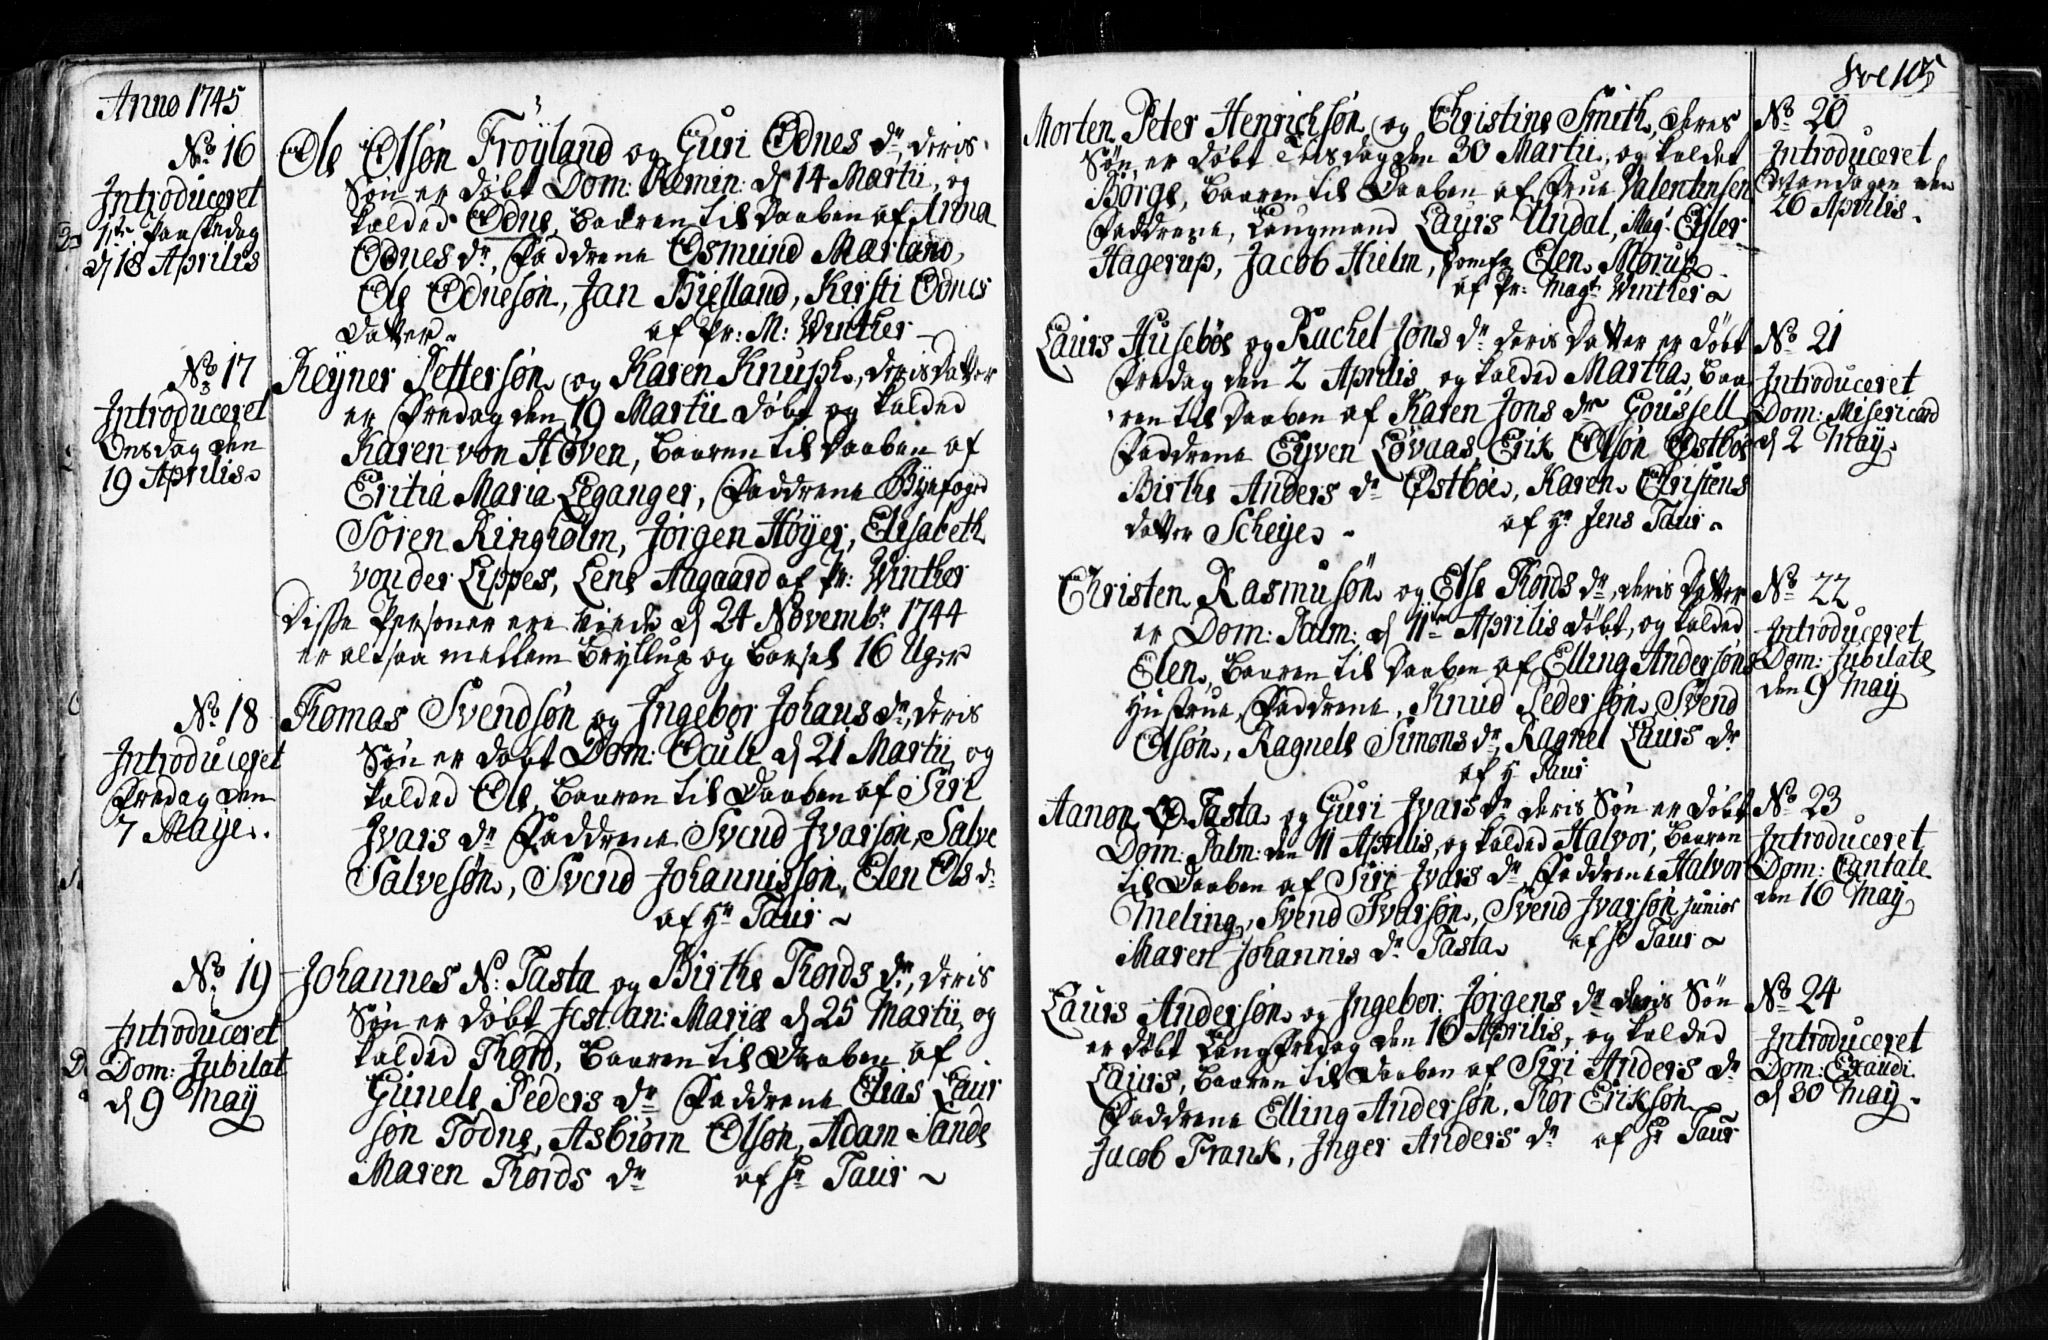 Anno 1745
No. 16
Introduceret
1ste Paaskedag
d 18 Aprilis
Ole Olsøn Frøÿland og Guri Odnes dr, deris
Søn er døbt Dom: Remin: d 14 Martii, og
kalded Odne, baaren til Daaben af Anna
Odnes dr, Faddrene Osmund Mærland,
Ole Odnesøn, Jan Bielland, Kirsti Odnes
Datter. af Pr: M: Winther
No. 17
Introduceret
Onsdag den
19 Aprilis
Reÿner Pettersøn og Karen Knuph, deris Datter
er Fredag den 19 Martii døbt og kalded
Karen von Høven, baaren til Daaben af
Eritia Maria Leganger, Faddrene Byefoged
Søren Ringholm, Jørgen Høÿer, Elisabeth
von der Lippes, Lene Aagaard af Pr: Winther
Disse Personer ere viede d 24 Novembr 1744
er altsaa mellem Bryllup og Barsel 16 Uger
No. 18
Introduceret
Fredag den
7 Maye.
Thomas Svendsøn og Ingebor Johans dr, deris
Søn er døbt Dom: Oculi d 21 Martii, og
kalded Ole, baaren til Daaben af Siri
Ivars dr Faddrene Svend Ivarsøn, Salve
Salvesøn, Svend Johannissøn, Elen Ols dr
af Hr Taur
No. 19
Introduceret
Dom: Jubilat
d 9 Maÿ
Johannes N: Tasta og Birthe Thords dr, deris
Søn er døbt Fest: an: Mariæ d 25 Martii, og
kalded Thord, baaren til Daaben af
Gunele Peders dr Faddrene Elias Laur
søn Todne, Asbiørn Olsøn, Adam Sande
Maren Thords dr af Hr Taur
Fol 105
Morten Peter Henrichsøn og Christine Smith, deres
Søn er døbt Tiisdag den 30 Martii, og kaldet
Børge, baaren til Daaben af Frue Valentinsen
Faddrene, Laugmand Laurs Undal, Mag: Eÿler
Hagerup, Jacob Hielm, Jomfr Elen Mørup
af Pr: Magr Winther
No. 20
Introduceret
Mandagen den
26 Aprilis.
Laurs Husebøe og Rachel Jons dr deris Datter er døbt
Fredag den 2 Aprilis og kalded Martha, baa
ren til Daaben af Karen Jons dr Goussell
Faddrene Eÿven Løvaas, Erik Olsøn Østbøe
Birthe Anders dr Østbøe, Karen Christens
datter Scheÿe. af Hr Jens Taur
No. 21
Introduceret
Dom: Misericord
d 2 Maÿ.
Christen Rasmusøn og Else Thords dr, deris Datter
er Dom: Palm: d 11te Aprilis døbt, og kalded
Elen, baaren til Daaben af Elling Andersøns
Hustrue, Faddrene, Knud Pedersøn, Svend
Olsøn, Ragnele Simons dr, Ragnel Laurs dr
af H Taur
No. 22
Introduceret
Dom: Jubilate
den 9 Maÿ
Aanøn O. Tasta og Guri Ivars dr deris Søn er døbt
Dom: Palm: den 11 Aprilis, og kalded Halvor, baaren
til Daaben af Siri Ivars dr, Faddrene Halvor
Meling, Svend Ivarsøn, Svend Ivarsøn junior
Maren Johannis dr Tasta af Hr Taur
No. 23
Introduceret
Dom: Cantate
den 16 Maÿ
Laurs Andersøn og Ingebor: Jørgens dr deris Søn
er døbt Langfredag den 16 Aprilis, og kalded
Laurs, baaren til Daaben af Siri Anders dr
Faddrene Elling Andersøn, Thor Eriksøn
Jacob Frank, Inger Anders dr af Hr Taur
No. 24
Introduceret
Dom: Exaudi
d 30 Maÿ.